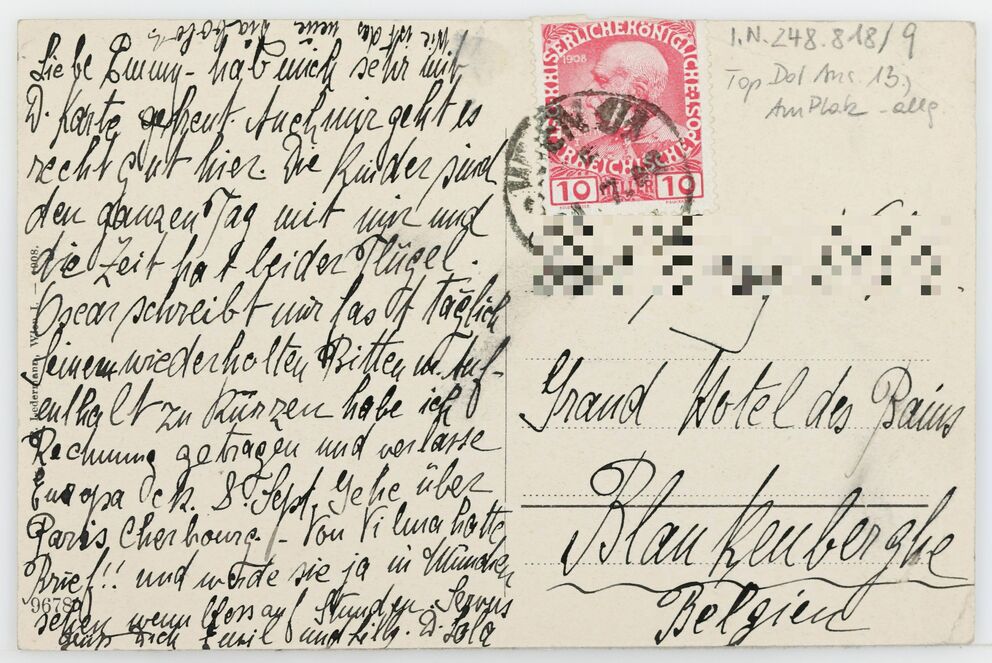 Wie ist das neue
Liebe Emmy - hab mich sehr mit
D. Karte gefreut. Auch mir geht es
recht gut hier. Die Kinder sind
den ganzen Tag mit mir und
die Zeit hat leider Flügel.
Oscar schreibt mir fast täglich
Seinem wiederholten Bitten m. Auf-
enthalt zu Kürzen habe ich
Rechnung getragen und verlasse
Europa d. 8. Sept. Gehe über
Paris Cherbourg. - Von Vilma hatte
Brief!! und werde sie ja in München
sehen wenn bloss auf Stunden. Servus
Emil und Lilly. D. Lola
Ledermann, Wien I. - 1908.
9678
KAISERLICHE KÖNIGLICHE
1908
ÖSTERREICHISCHE
10 HELLER 10
WIEN
I.N. 248.818/9
Top Dol Ans. 13,
Am Platz - allg
Grand Hotel des Bains
Blankenberghe
Belgien